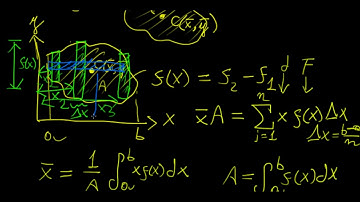 C(x̄, ȳ)
y
f(x)
C(x̄,
A
Δx
a
b
x
f(x) = f₂ - f₁
d F
x̄A = Σ x f(x) Δx
n
j=1
Δx = b-a/n
x̄ = 1/A ∫ₐᵇ x f(x) dx
A = ∫ₐᵇ f(x) dx